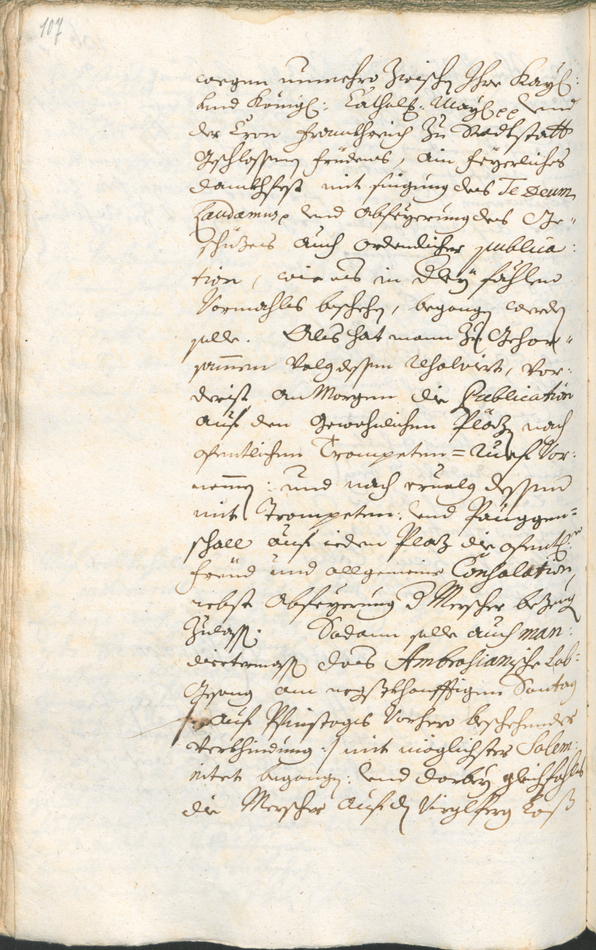 107
wegen nunmehro zwischen Ihro Kayl:
und Königl: Cathol: May: und
der Cron Franckhreich zu Radtstatt
Geschlossenen fridens, ein feyerliches
danckhfest mit singung des Te Deum
Laudamus und Abfeyerung des Ge-
schüzes auch ordenlicher publica:
tion, wie es in dergleichen fählen
Vormahls beschehen, begangen werden
solle. Als hat mann zu Gehor-
sammen Volg dessen resolviert, Vor-
derist am Morgen die Publication
auf den gewohnlichen Pläz nach
ofentlichen Trompeten=Ruef Vor-
nemmen: und nach ervolg dessen
mit Trompeten: und Pauggen=
schall auf jeden Plaz die ofentl:
Freud und allgemeine Consolation
nebst Abfeyerung der Merscher bezeugen
zulassen. Sodann solle auch man-
dirtermassen das Ambrosianische Lob-
Gesang am negstkhonfftigen Sontag
auf Pfinstags Vorhero beschehender
Verkhindung :/ mit möglichster Solem-
nitet begangen: und darbey gleichfahls
die Merscher auf dem Virglberg Loß